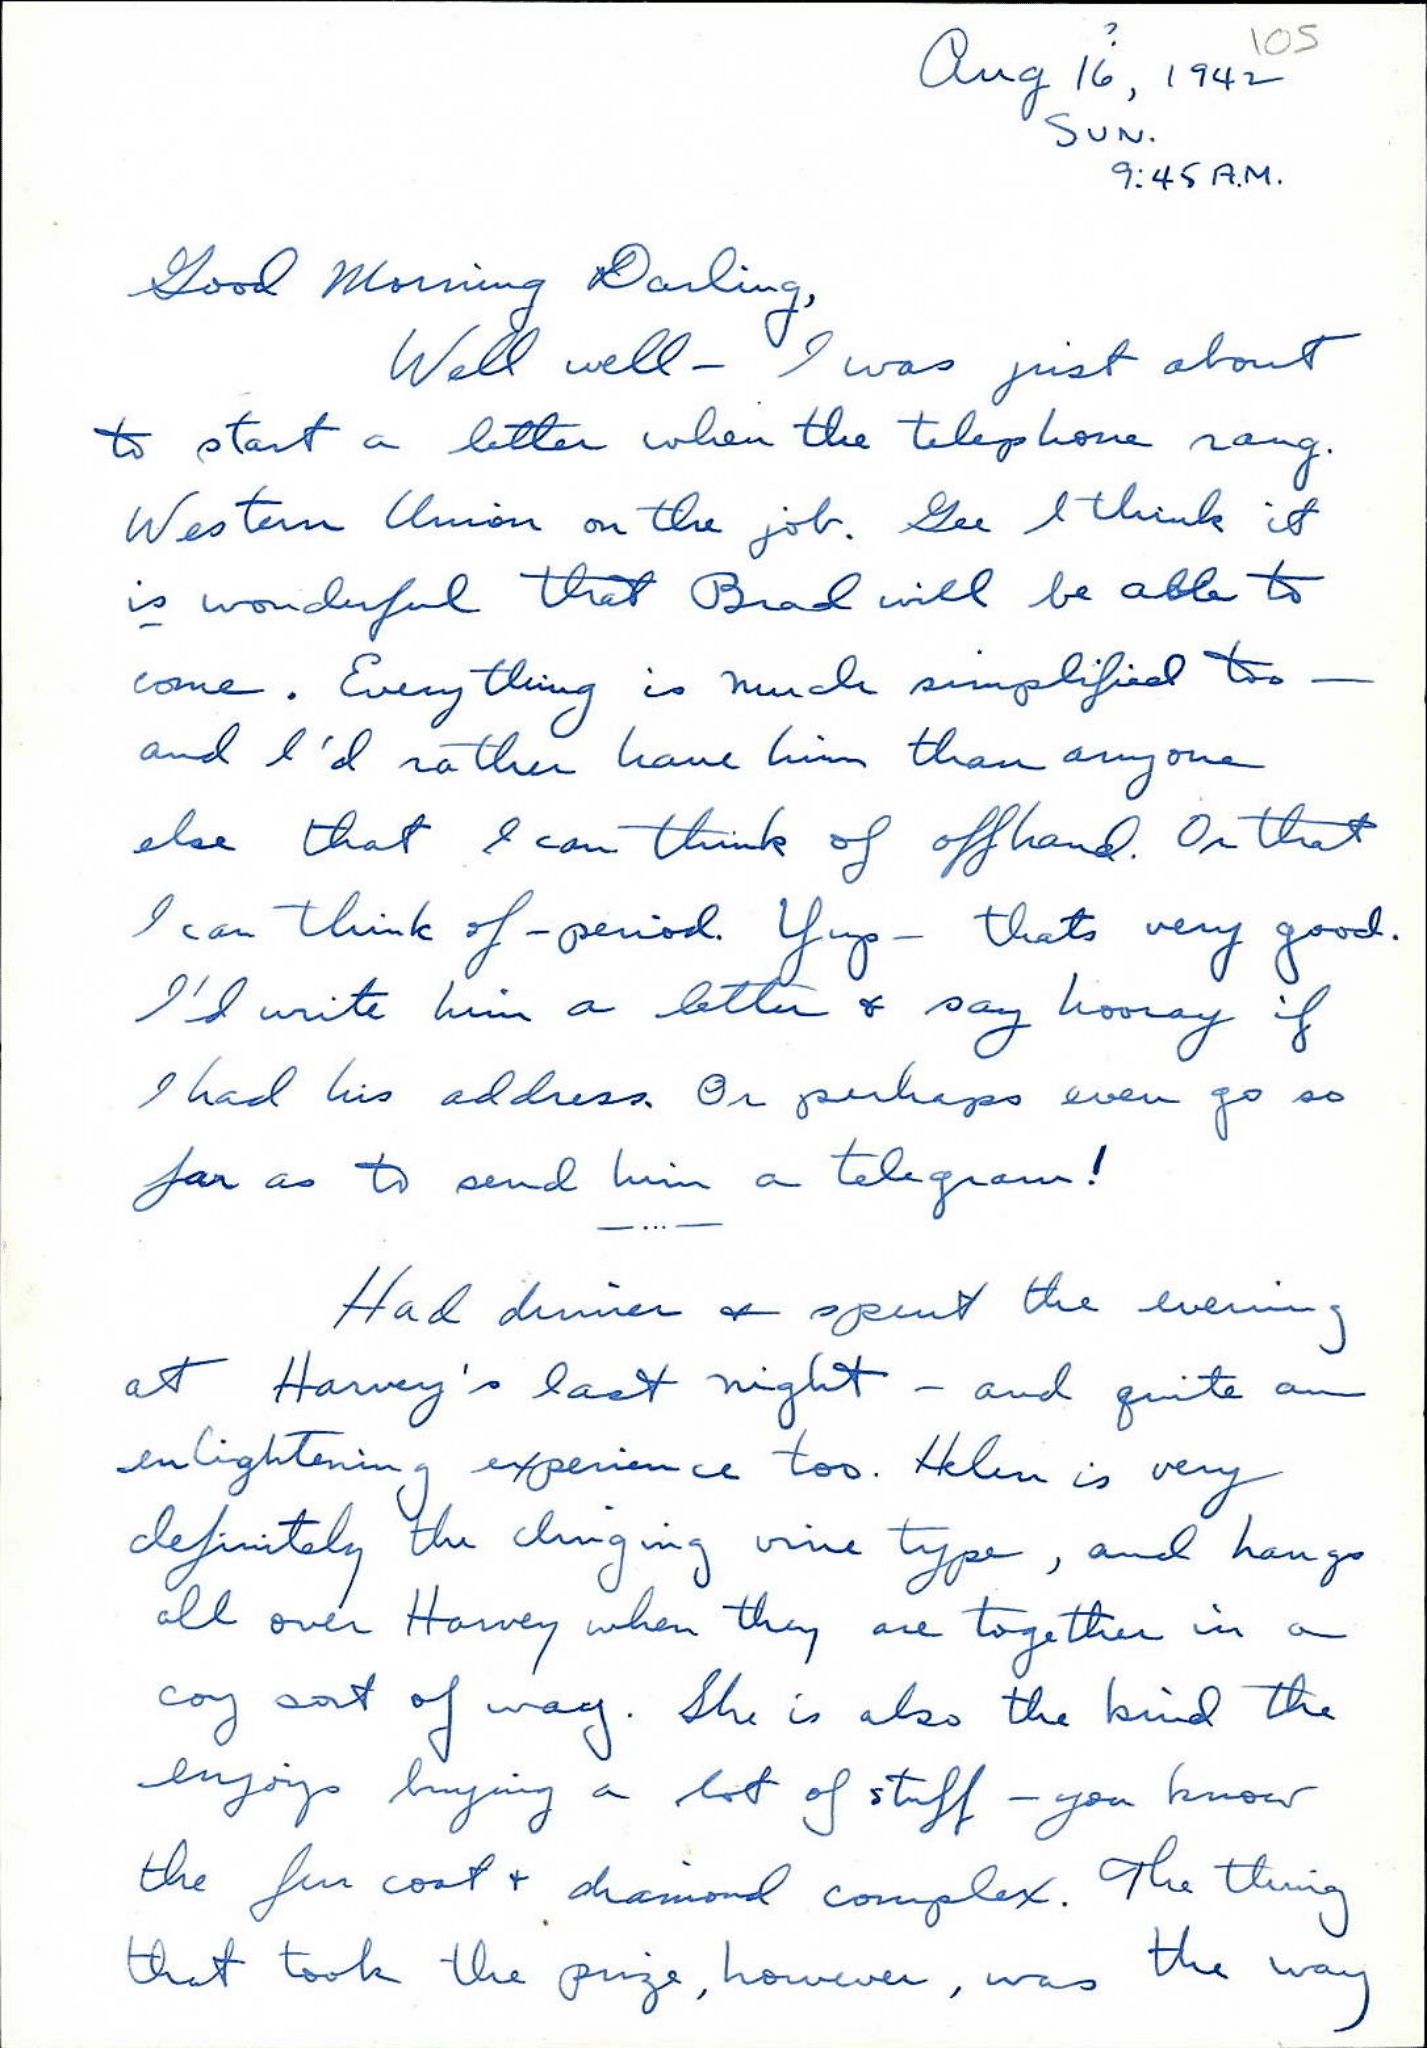 105
?
Aug 16, 1942
SUN.
9:45 A.M.
Good Morning Darling,
Well well – I was just about
to start a letter when the telephone rang.
Western Union on the job. Gee I think it
is wonderful that Brad will be able to
come. Everything is much simplified too –
and I'd rather have him than anyone
else that I can think of offhand. Or that
I can think of – period. Yup – thats very good.
I'd write him a letter & say hooray if
I had his address. Or perhaps even go so
far as to send him a telegram!
— ... —
Had dinner & spent the evening
at Harvey's last night – and quite an
enlightening experience too. Helen is very
definitely the clinging vine type, and hangs
all over Harvey when they are together in a
coy sort of way. She is also the kind the
enjoys buying a lot of stuff – you know
the fur coat & diamond complex. The thing
that took the prize, however, was the way